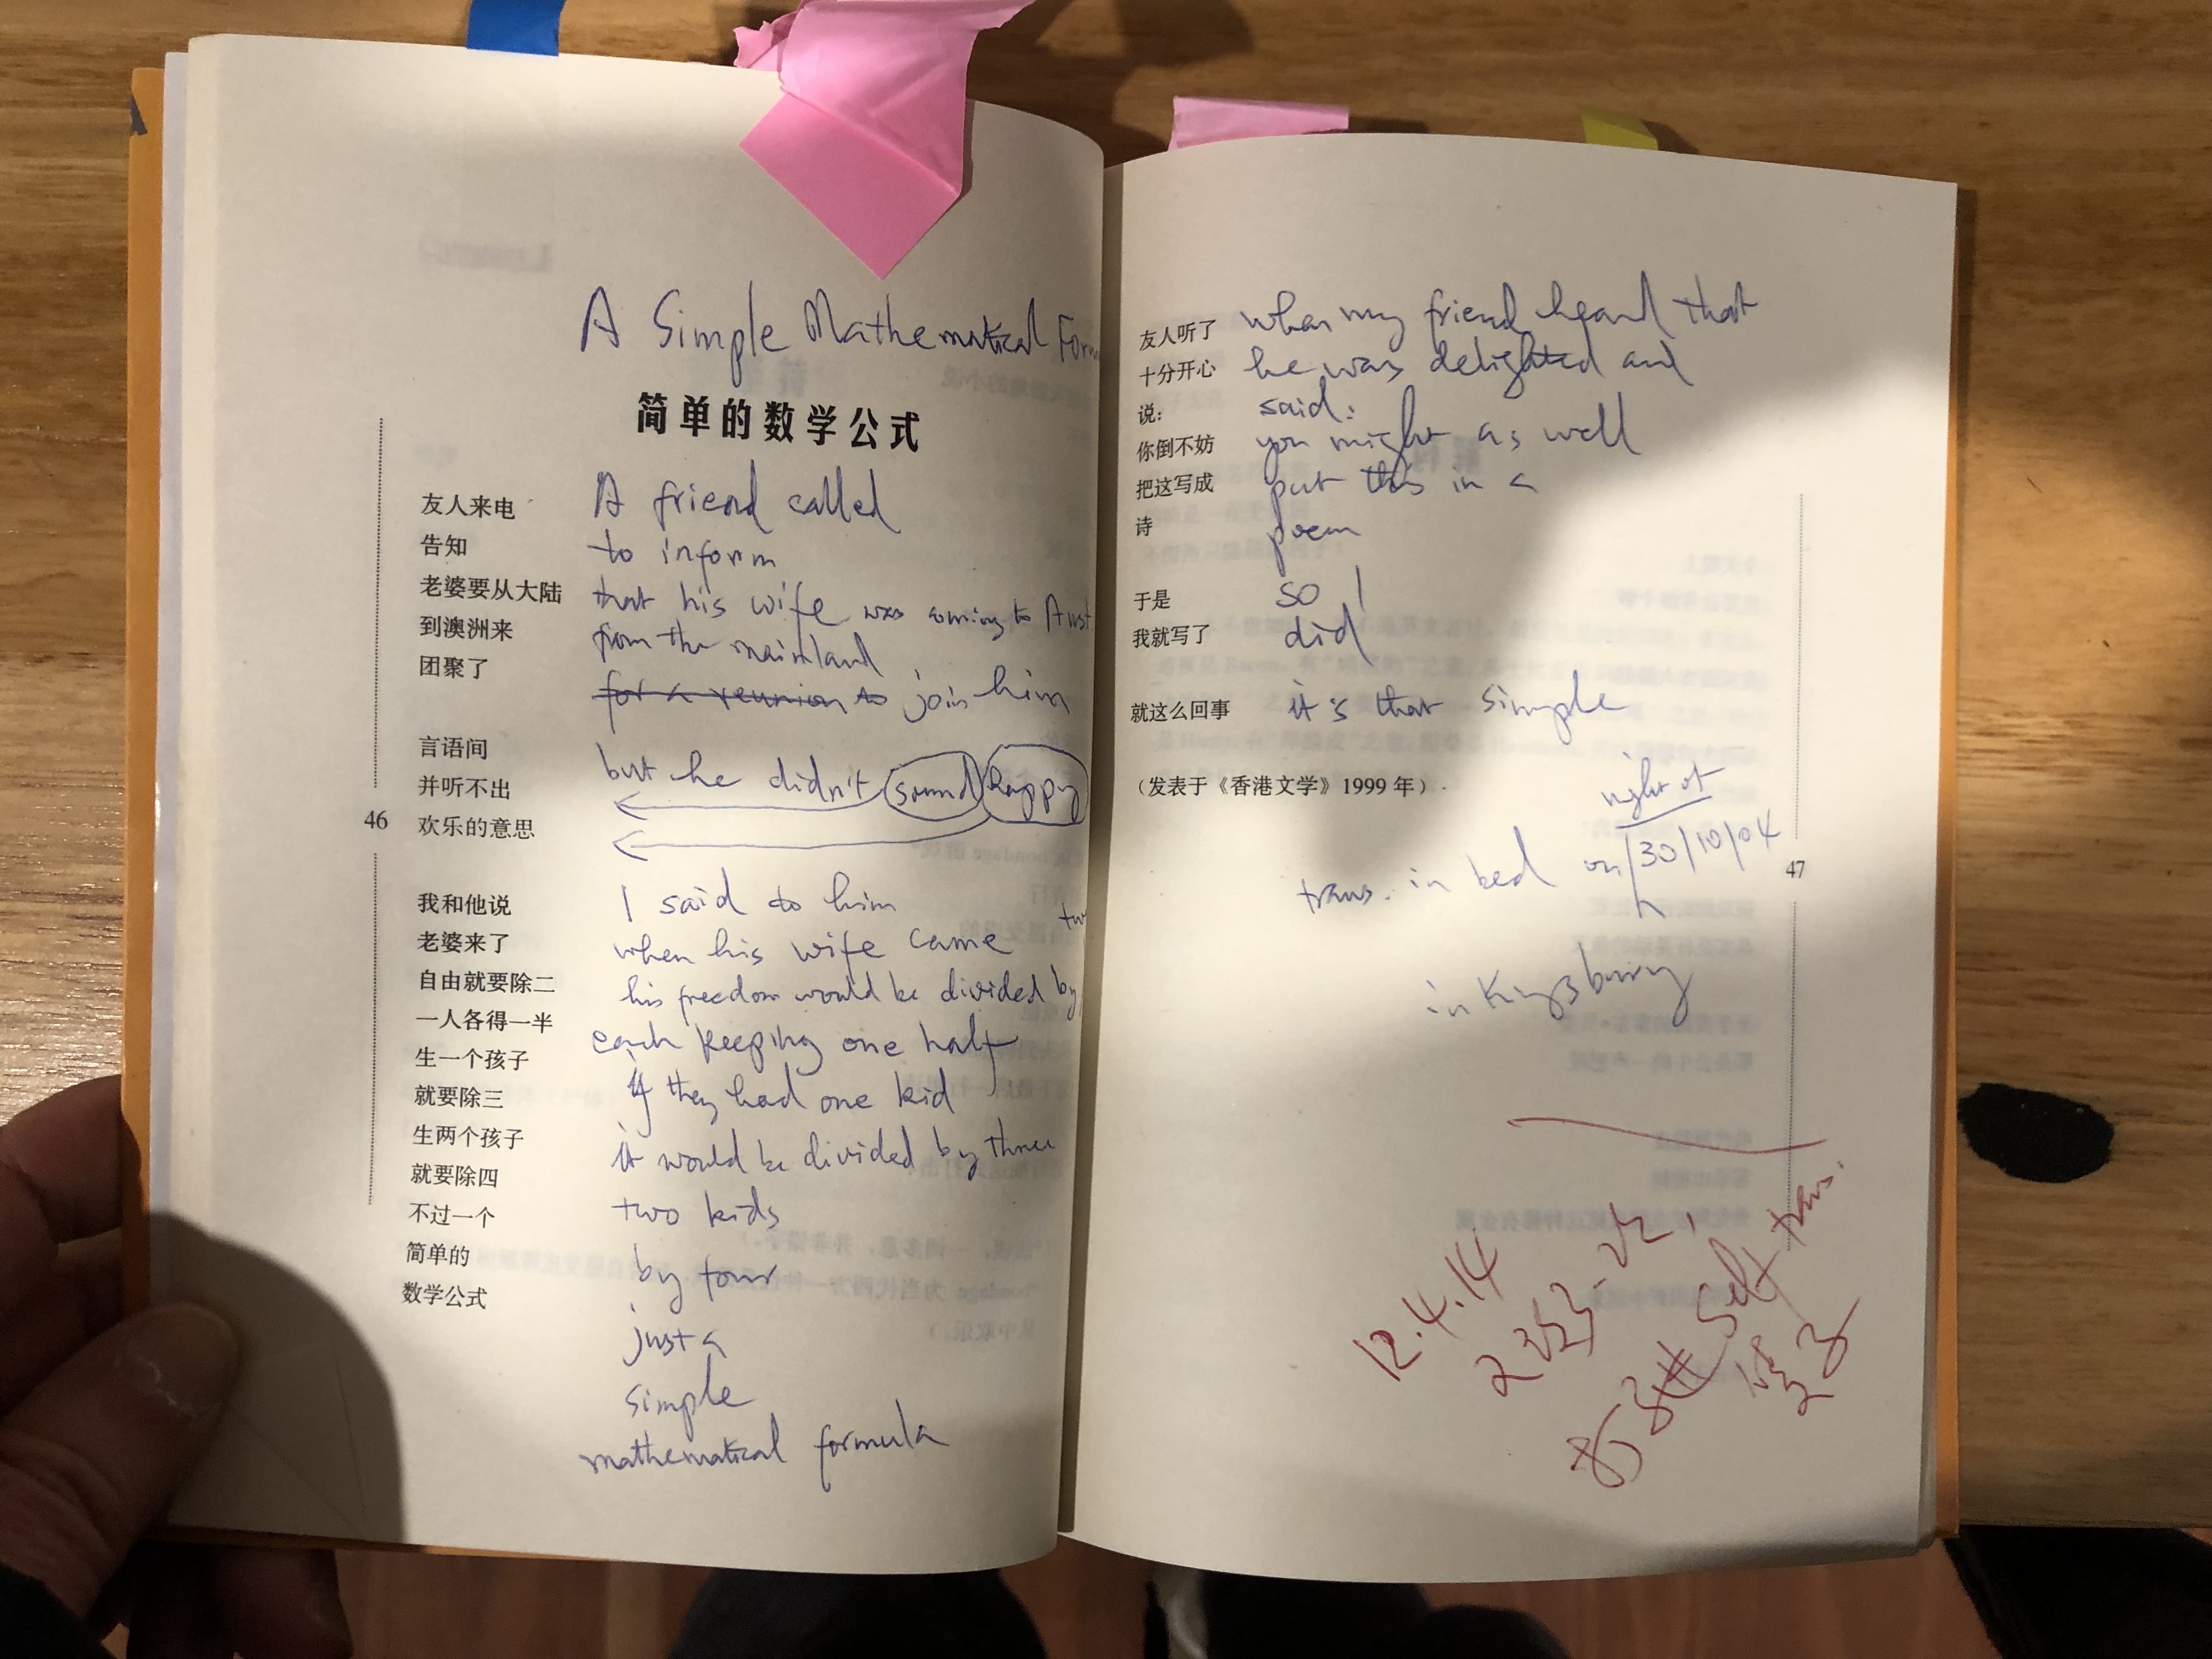 A Simple Mathematical Form
简单的数学公式
友人来电
告知
老婆要从大陆
到澳洲来
团聚了
言语间
并听不出
欢乐的意思
我和他说
老婆来了
自由就要除二
一人各得一半
生一个孩子
就要除三
生两个孩子
就要除四
不过一个
简单的
数学公式
46
A friend called
to inform
that his wife was coming to Aust
from the mainland
for a reunion to join him
but he didn't sound happy
I said to him
when his wife came
two
his freedom would be divided by
each keeping one half
if they had one kid
it would be divided by three
two kids
by four
just a
simple
mathematical formula
友人听了
十分开心
说:
你倒不妨
把这写成
诗
于是
我就写了
就这么回事
(发表于《香港文学》1999年)
47
when my friend heard that
he was delighted and
said:
you might as well
put this in a
poem
so I
did
it's that simple
night of
trans. in bed on 30/10/04
in Kingsbury
12.4.14
self trans.